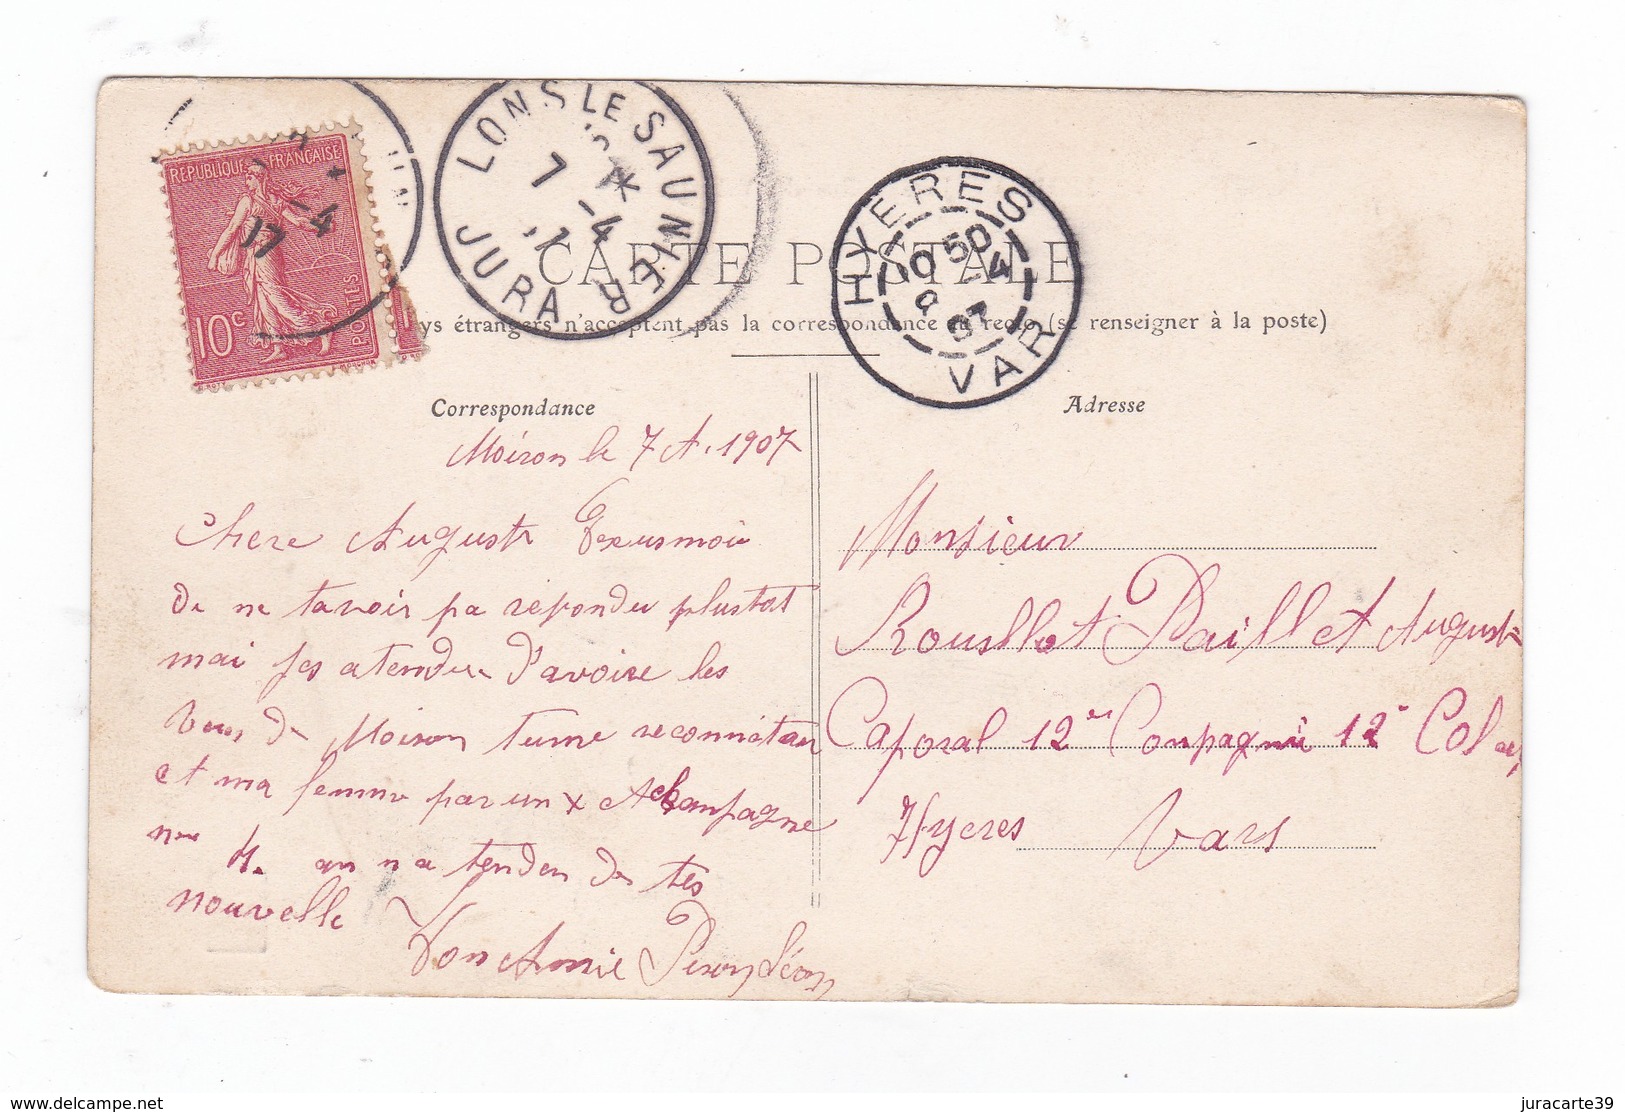 REPUBLIQUE FRANÇAISE
10c
POSTES
17 -4
LONS LE SAUNIER
7 -4
JURA
HYERES
10 50
9 -4
07
VAR
CARTE POSTALE
ys étrangers n'acceptent pas la correspondance au recto (se renseigner à la poste)
Correspondance
Moiron le 7 A. 1907
Chere Auguste Exusmoi
de ne tavoir pa repondu plustot
mai jes atendu d'avoire les
vus de Moiron tume reconnaitau
et ma femme par un x et Achampagne
nous 4. an n a tenden de tes
nouvelle
Ton Amie Peron Léon
Adresse
Monsieur
Rousllot Paillet August
Caporal 12e Conpagnie 12e Col
Hyeres Vars
www.delcampe.net
juracarte39